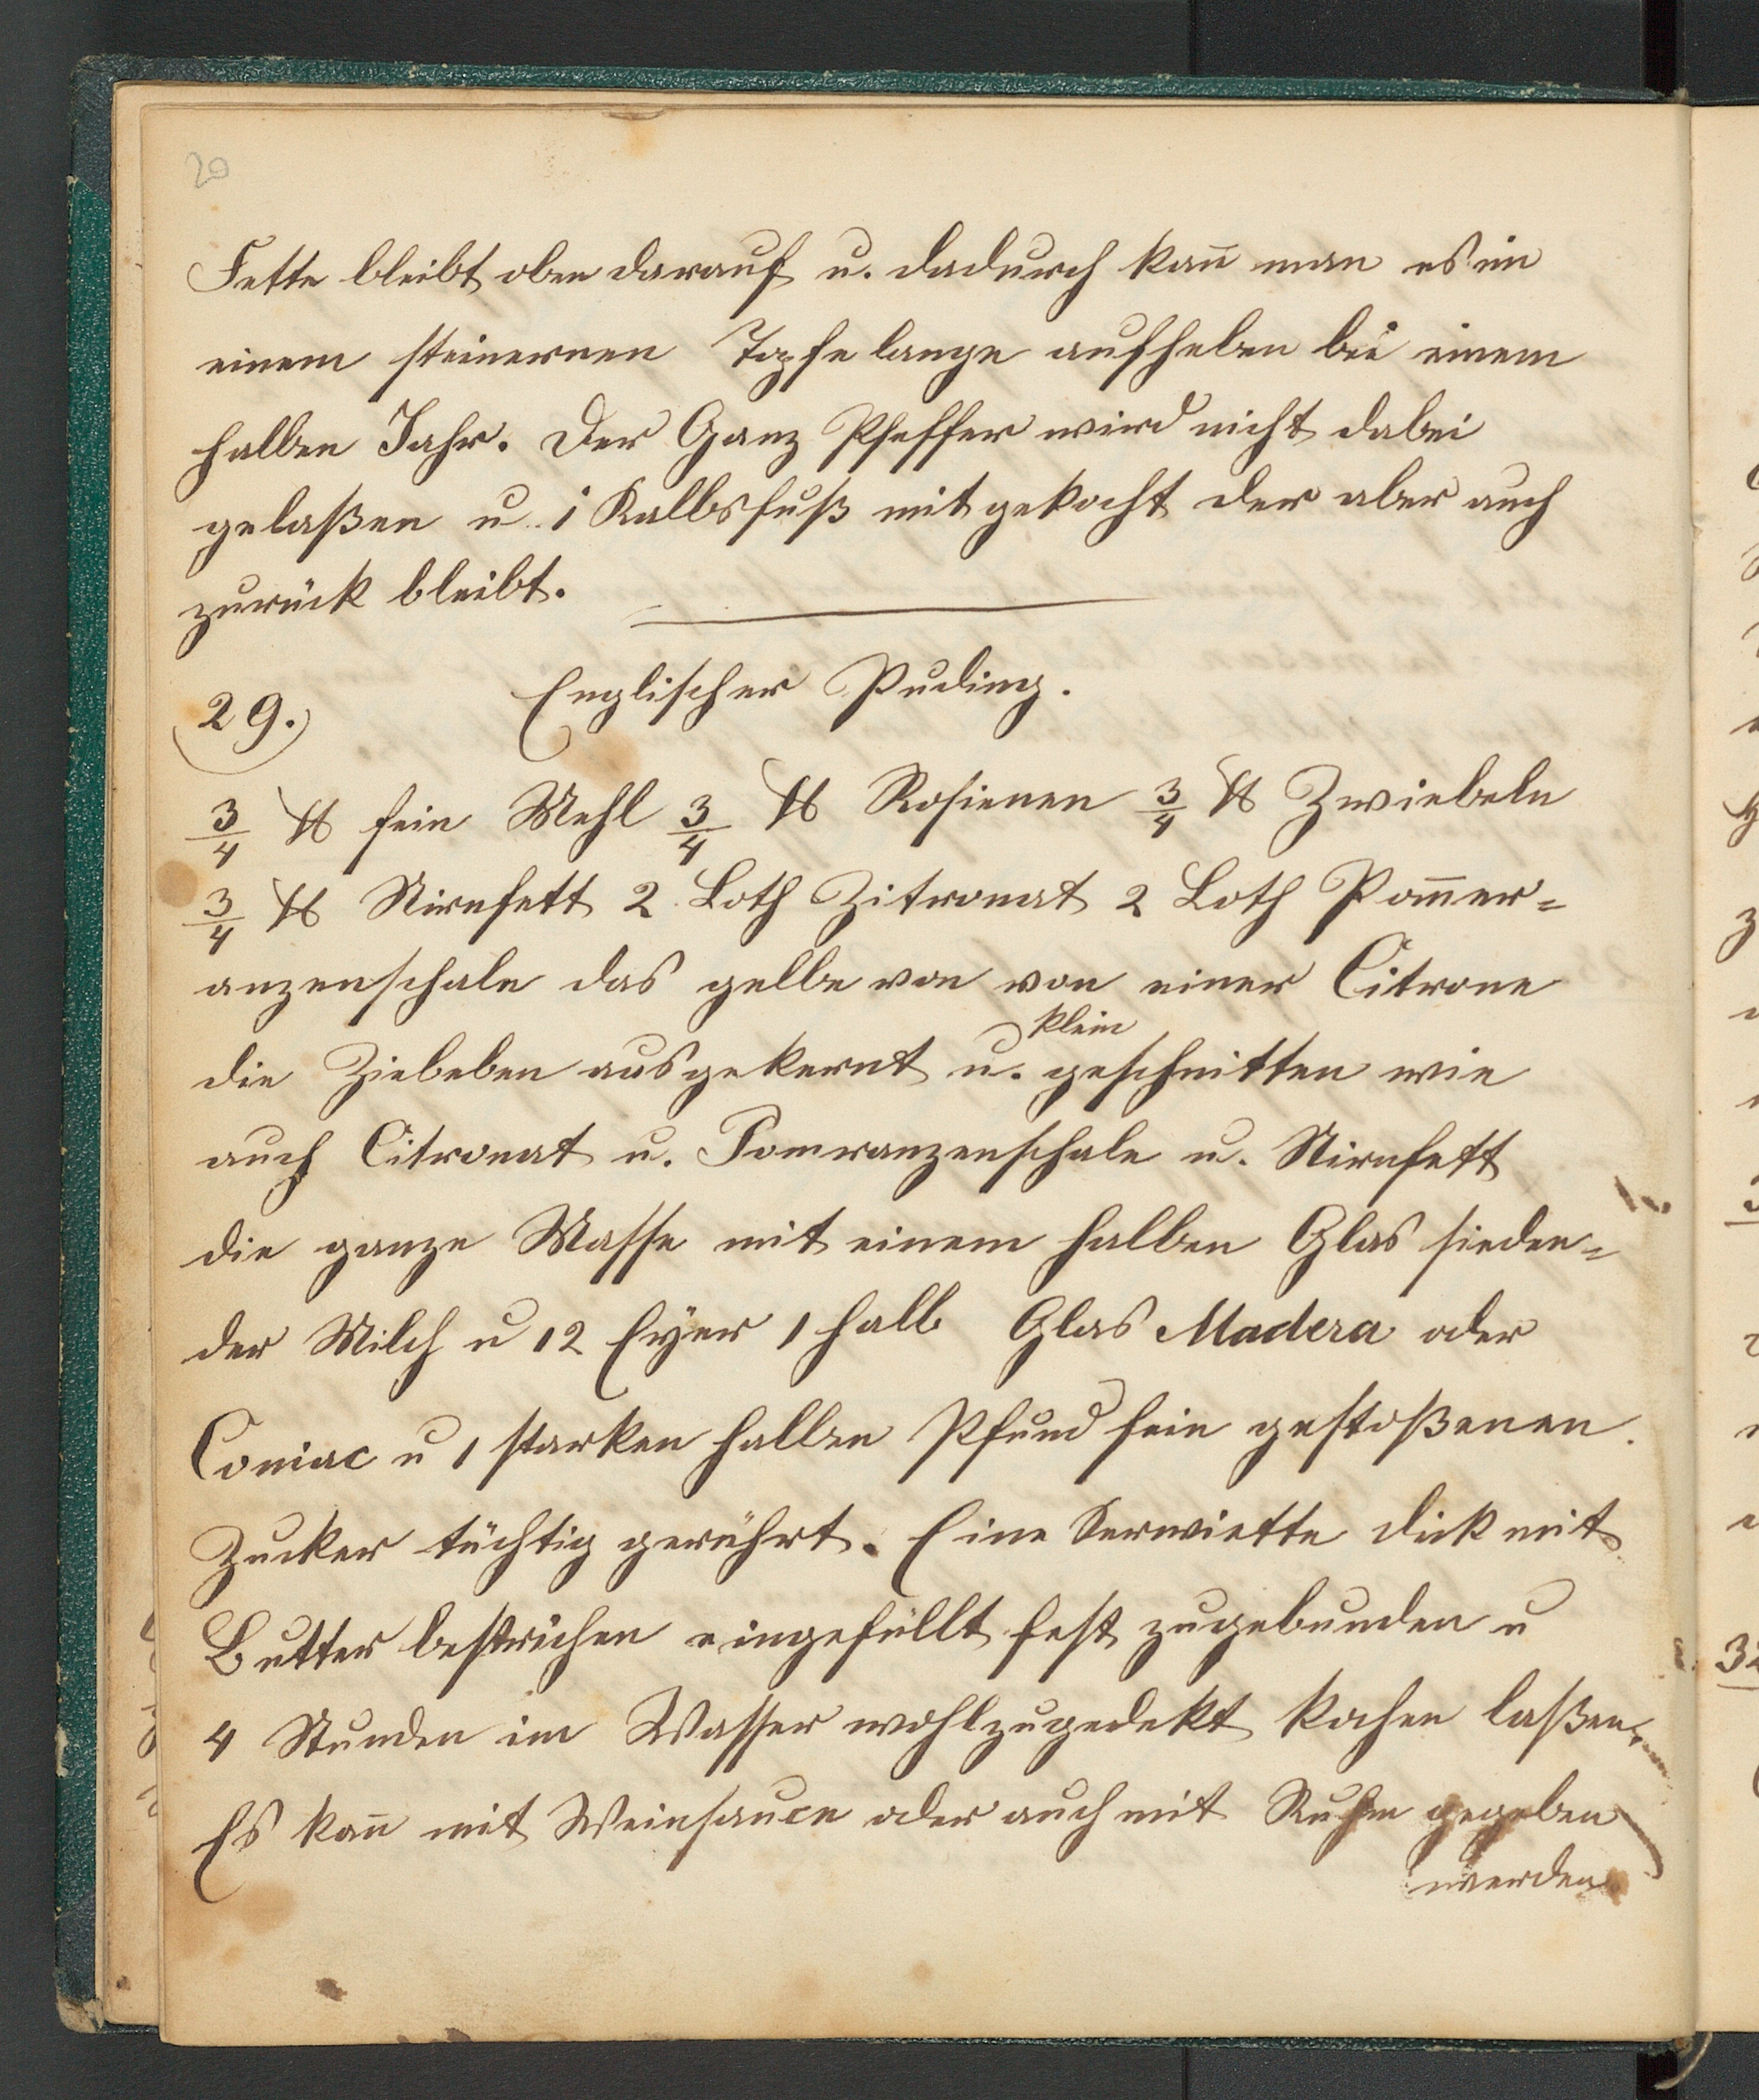 20
Fette bleibt oben darauf u. dadurch kan̄ man es in
einem steinernen Topfe lange aufheben bei einem
halben Jahr. Der Ganz Pfeffer wird nicht dabei
gelaßen u. 1 Kalbsfuß mit gekocht der aber auch
zurück bleibt.
29. Englischer Puding.
3/4 ℔ fein Mehl 3/4 ℔ Rosienen 3/4 ℔ Zwiebeln
3/4 ℔ Nirnfett 2 Loth Zitronat 2 Loth Pom̄er=
anzenschale das gelbe von von einer Citrone
die Ziebeben ausgekernt u. klein geschnitten wie
auch Citronat u. Pomranzenschale u. Nirnfett
die ganze Masse mit einem halben Glas sieden=
der Milch u 12 Eÿer 1 halb Glas Madera oder
Coniac u 1 starken halben Pfund fein gestoßenen
Zucker tüchtig gerührt. Eine Serwiette dick mit
Butter bestrichen eingefüllt fest zugebunden u
4 Stunden im Wasser wohlzugedekt kochen laßen.
Es kan̄ mit Weinsauce oder auch mit Ruhm gegeben
werden.